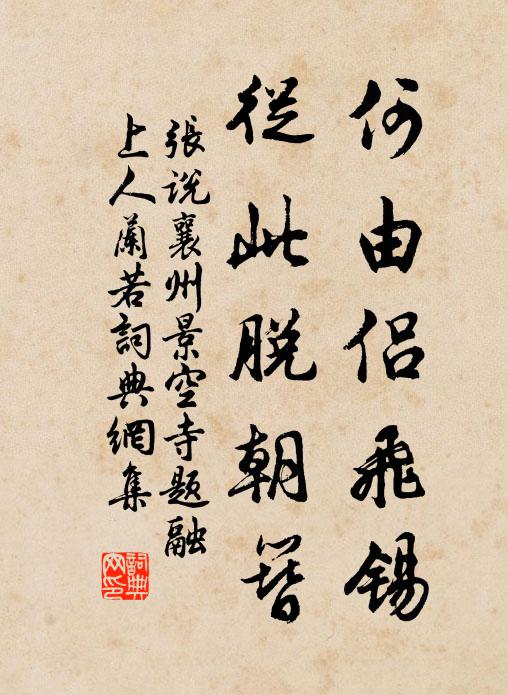 何由侣飛錫
從此脱朝簪
張说襄州景空寺题融
上人蘭若詞典網集
詞典
网印